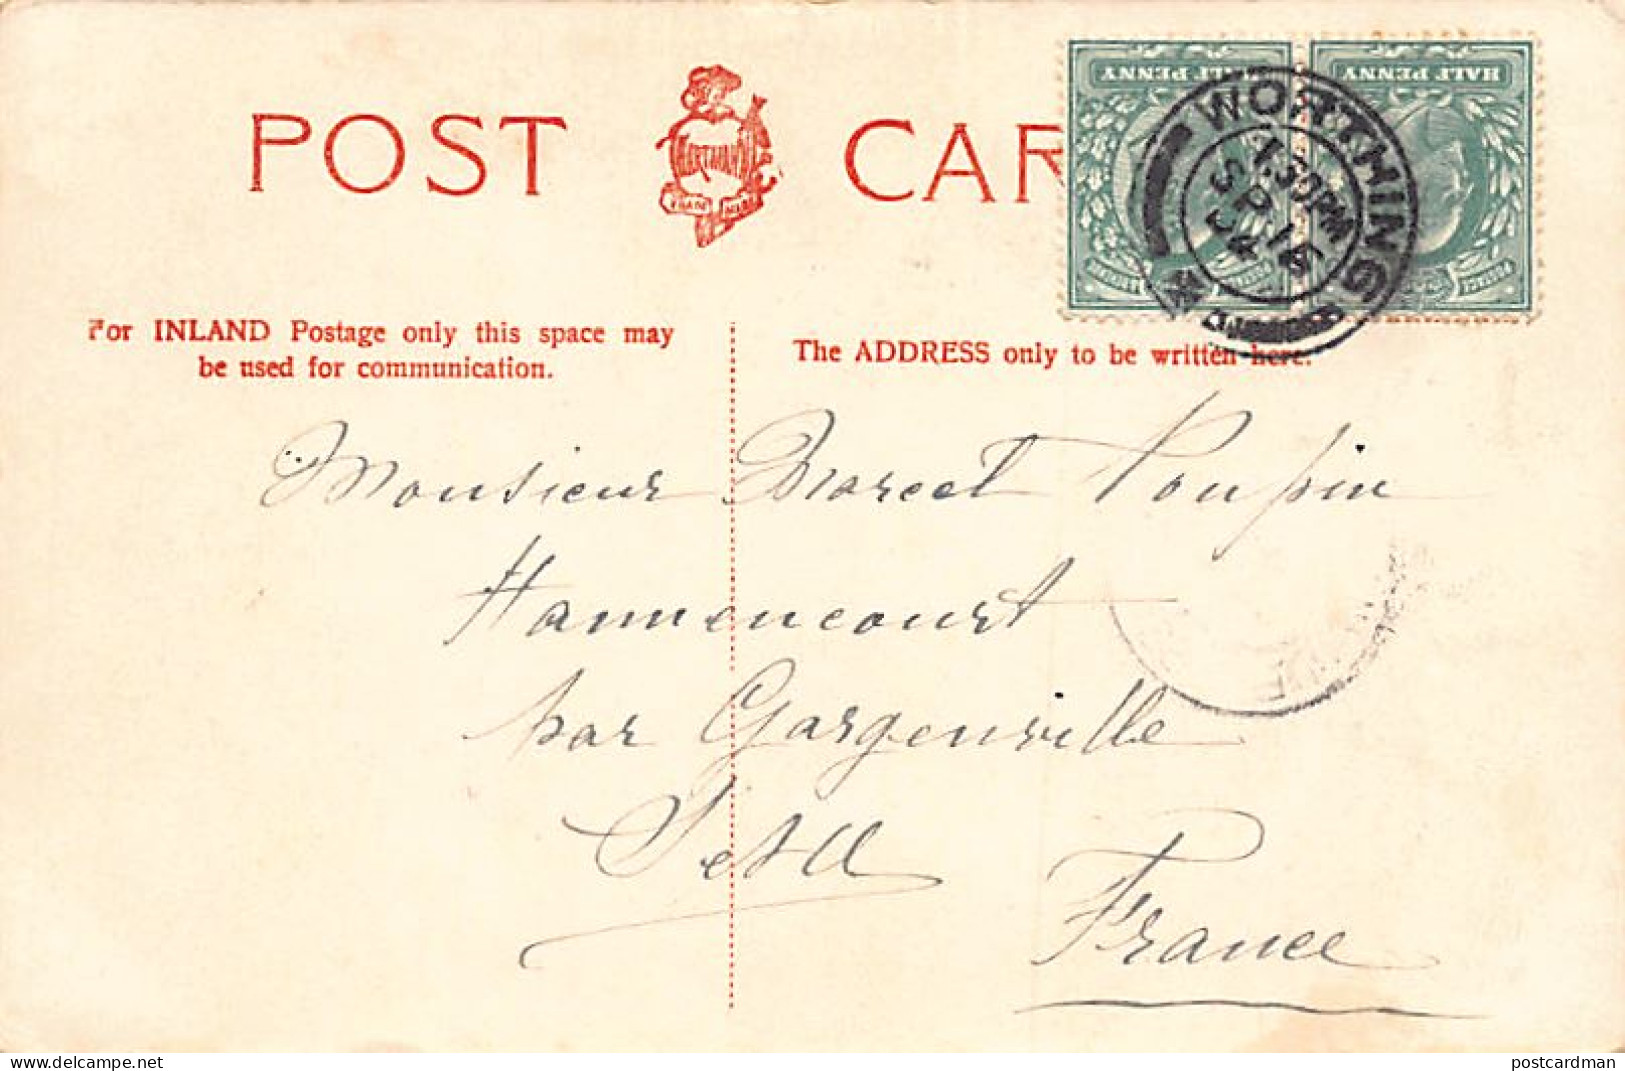 POST CAR
HARTMANN
TRADE MARK
HALF PENNY
HALF PENNY
WORTHING
1.30PM
SP 16
04
For INLAND Postage only this space may
be used for communication.
The ADDRESS only to be written here.
Monsieur Marcel Poupin
Hannencourt
par Gargenville
S et O
France
delcampe.net
postcardman